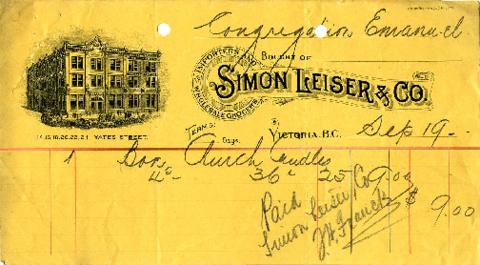 Congregation Emanuel
BOUGHT OF
IMPORTERS AND
WHOLESALE GROCERS
SIMON LEISER & CO.
14, 16, 18, 20, 22, 24 YATES STREET.
TERMS:
Days.
VICTORIA, B.C. Sep 19
1 Box Church Candles
40 36 25 9.00
$ 9.00
Paid
Simon Leiser Co